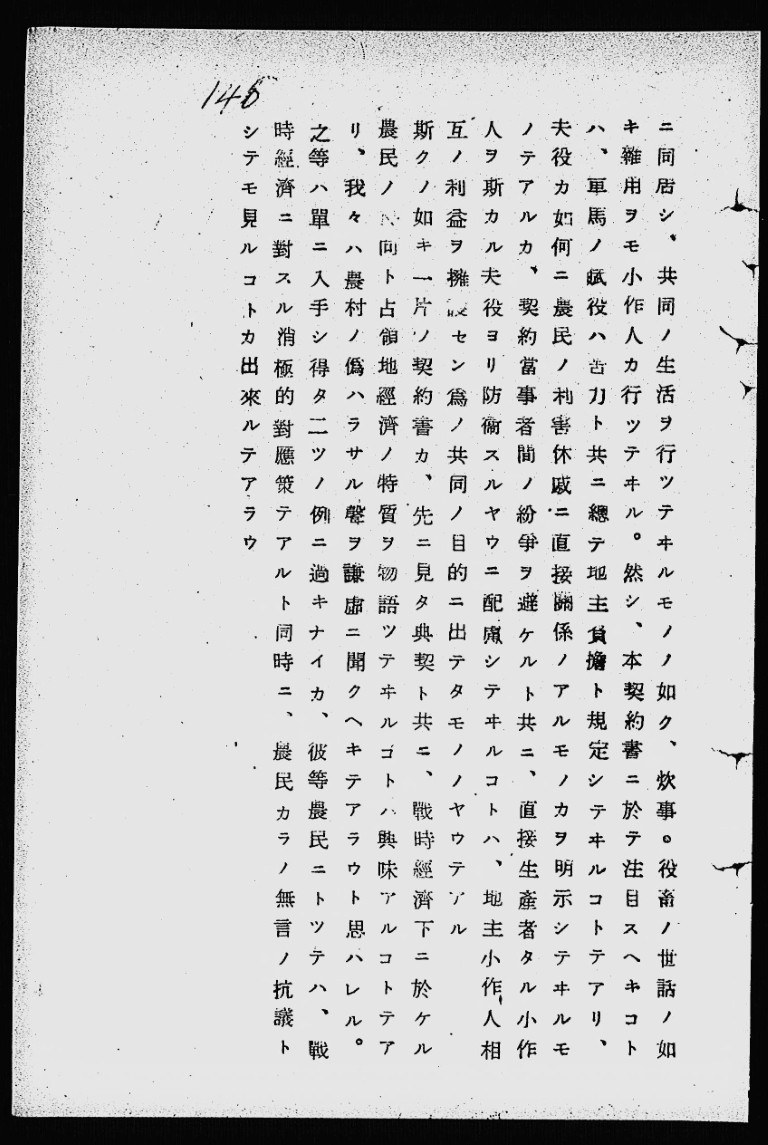 148
ニ同居シ、共同ノ生活ヲ行ツテヰルモノノ如ク、炊事。役畜ノ世話ノ如
キ雜用ヲモ小作人カ行ツテヰル。然シ、本契約書ニ於テ注目スヘキコト
ハ、軍馬ノ賦役ハ苦力ト共ニ總テ地主負擔ト規定シテヰルコトテアリ、
夫役カ如何ニ農民ノ利害休戚ニ直接關係ノアルモノカヲ明示シテヰルモ
ノテアルカ、契約當事者間ノ紛爭ヲ避ケルト共ニ、直接生產者タル小作
人ヲ斯カル夫役ヨリ防衞スルヤウニ配慮シテヰルコトハ、地主小作人相
互ノ利益ヲ擁護セン爲ノ共同ノ目的ニ出テタモノノヤウテアル
斯クノ如キ一片ノ契約書カ、先ニ見タ典契ト共ニ、戰時經濟下ニ於ケル
農民ノ向ト占領地經濟ノ特質ヲ物語ツテヰルコトハ興味アルコトテア
リ、我々ハ農村ノ僞ハラサル聲ヲ謙虛ニ聞クヘキテアラウト思ハレル。
之等ハ單ニ入手シ得タ二ツノ例ニ過キナイカ、彼等農民ニトツテハ、戰
時經濟ニ對スル消極的對應策テアルト同時ニ、農民カラノ無言ノ抗議ト
シテモ見ルコトカ出來ルテアラウ